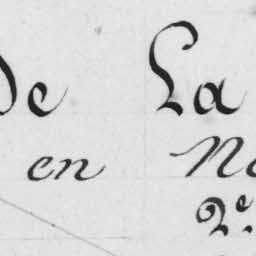 de La
en
2e.